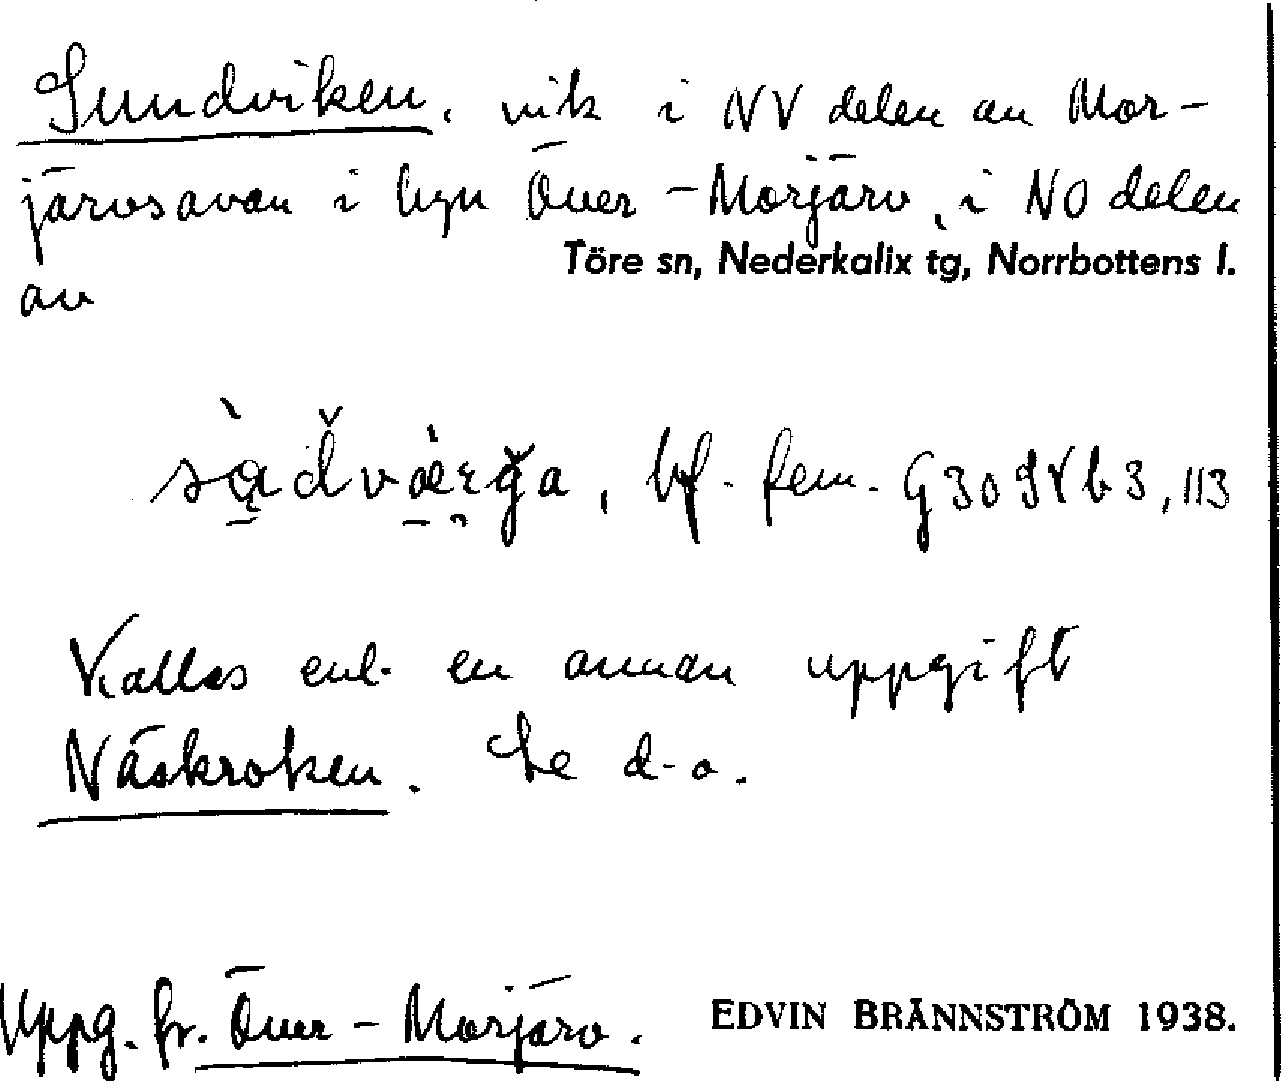 Sundviken, vik i NV delen av Mor-
järvsavan i byn Över-Morjärv, i NO delen
Töre sn, Nederkalix tg, Norrbottens l.
av
bf. fem.
Kallas enl. en annan uppgift
Näskroken. Se d.o.
Uppg. fr. Över-Morjärv.
EDVIN BRÄNNSTRÖM 1938.